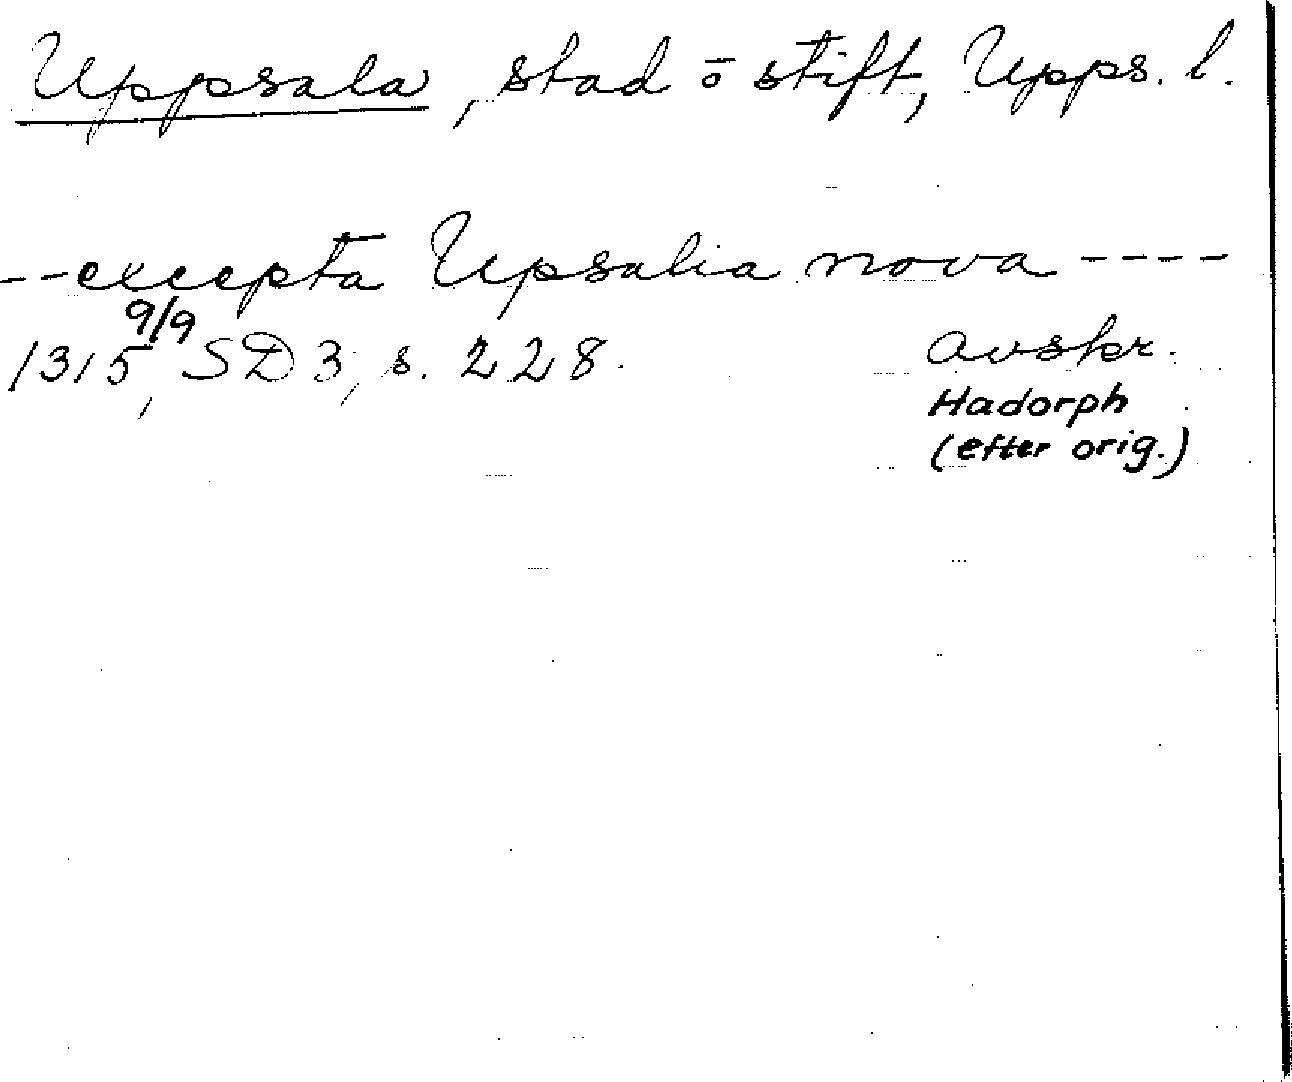 Uppsala, stad o stift, Upps. l.
--excepta Upsalia nova ----
1315 9/9, SD 3, s. 228.
avskr.
Hadorph
(efter orig.)